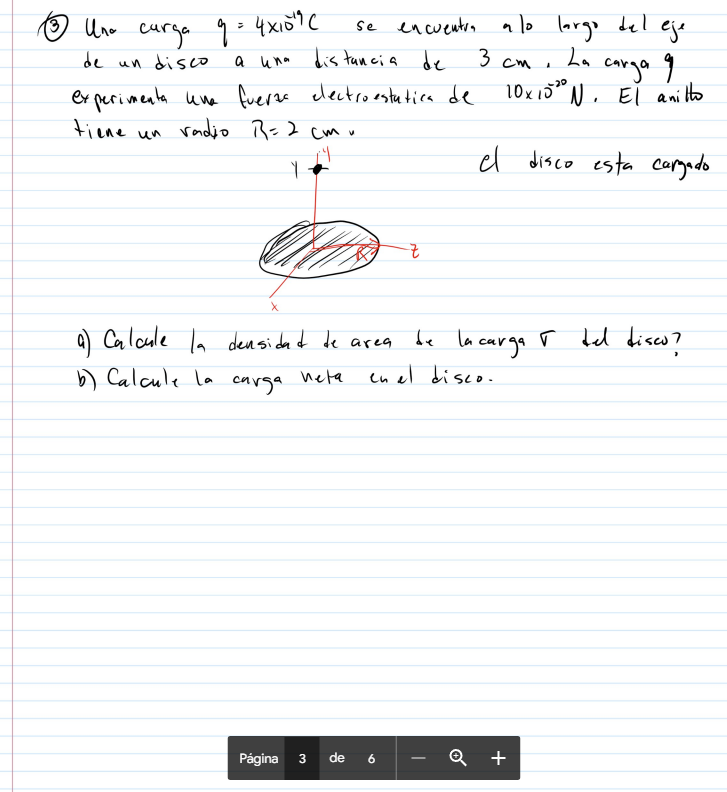 ③ Una carga q = 4x10⁻¹⁹ C se encuentra a lo largo del eje
de un disco a una distancia de 3 cm. La carga q
experimenta una fuerza electroestatica de 10x10⁻²⁰ N. El anillo
tiene un radio R = 2 cm.
el disco esta cargado
Y
y
R
z
x
a) Calcule la densidad de area de la carga σ del disco?
b) Calcule la carga neta en el disco.
Página 3 de 6 — +